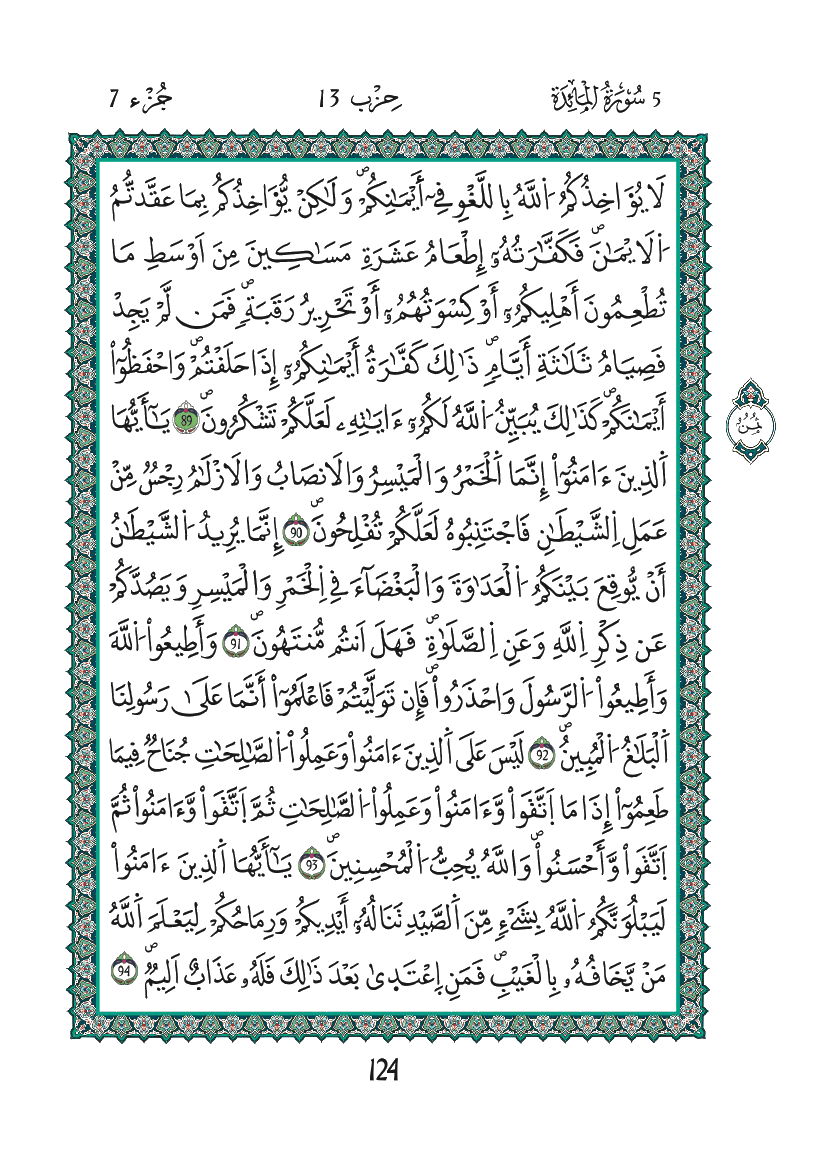 5 سُورَةُ الْمَائِدَة
حِزْب 13
جُزْء 7
لَا يُؤَاخِذُكُمُ اُللَّهُ بِاللَّغْوِ فِےٓ أَيْمَٰنِكُمْۖ وَلَٰكِنْ يُّؤَاخِذُكُم بِمَا عَقَّدتُّمُ
اُلَايْمَٰنَۖ فَكَفَّٰرَتُهُۥٓ إِطْعَامُ عَشَرَةِ مَسَٰكِينَ مِنَ اَوْسَطِ مَا
تُطْعِمُونَ أَهْلِيكُمُۥٓ أَوْ كِسْوَتُهُمُۥٓ أَوْ تَحْرِيرُ رَقَبَةٖۖ فَمَن لَّمْ يَجِدْ
فَصِيَامُ ثَلَٰثَةِ أَيَّامٖۖ ذَٰلِكَ كَفَّٰرَةُ أَيْمَٰنِكُمُۥٓ إِذَا حَلَفْتُمْۖ وَاحْفَظُوٓاْ
أَيْمَٰنَكُمْۖ كَذَٰلِكَ يُبَيِّنُ اُللَّهُ لَكُمُۥٓ ءَايَٰتِهِۦ لَعَلَّكُمْ تَشْكُرُونَۖ 89 يَٰٓأَيُّهَا
اَلذِينَ ءَامَنُوٓاْ إِنَّمَا اَلْخَمْرُ وَالْمَيْسِرُ وَالَانصَابُ وَالَازْلَٰمُ رِجْسٌ مِّنْ
عَمَلِ اِلشَّيْطَٰنِ فَاجْتَنِبُوهُ لَعَلَّكُمْ تُفْلِحُونَۖ 90 إِنَّمَا يُرِيدُ اُلشَّيْطَٰنُ
أَنْ يُّوقِعَ بَيْنَكُمُ اُلْعَدَٰوَةَ وَالْبَغْضَآءَ فِے اِلْخَمْرِ وَالْمَيْسِرِ وَيَصُدَّكُمْ
عَن ذِكْرِ اِللَّهِ وَعَنِ اِلصَّلَوٰةِۖ فَهَلَ اَنتُم مُّنتَهُونَۖ 91 وَأَطِيعُواْ اُللَّهَ
وَأَطِيعُواْ اُلرَّسُولَ وَاحْذَرُواْۖ فَإِن تَوَلَّيْتُمْ فَاعْلَمُوٓاْ أَنَّمَا عَلَىٰ رَسُولِنَا
اَلْبَلَٰغُ اُلْمُبِينُۖ 92 لَيْسَ عَلَى اَلذِينَ ءَامَنُواْ وَعَمِلُواْ اُلصَّٰلِحَٰتِ جُنَاحٌ فِيمَا
طَعِمُوٓاْ إِذَا مَا اَتَّقَواْ وَّءَامَنُواْ وَعَمِلُواْ اُلصَّٰلِحَٰتِ ثُمَّ اَتَّقَواْ وَّءَامَنُواْ ثُمَّ
اَتَّقَواْ وَّأَحْسَنُواْۖ وَاللَّهُ يُحِبُّ اُلْمُحْسِنِينَۖ 93 يَٰٓأَيُّهَا اَلذِينَ ءَامَنُواْ
لَيَبْلُوَنَّكُمُ اُللَّهُ بِشَےْءٖ مِّنَ اَلصَّيْدِ تَنَالُهُۥٓ أَيْدِيكُمْ وَرِمَاحُكُمْ لِيَعْلَمَ اَللَّهُ
مَنْ يَّخَافُهُۥ بِالْغَيْبِۖ فَمَنِ اِعْتَدَىٰ بَعْدَ ذَٰلِكَ فَلَهُۥ عَذَابٌ اَلِيمٌۖ 94
ثُمُنُ
124